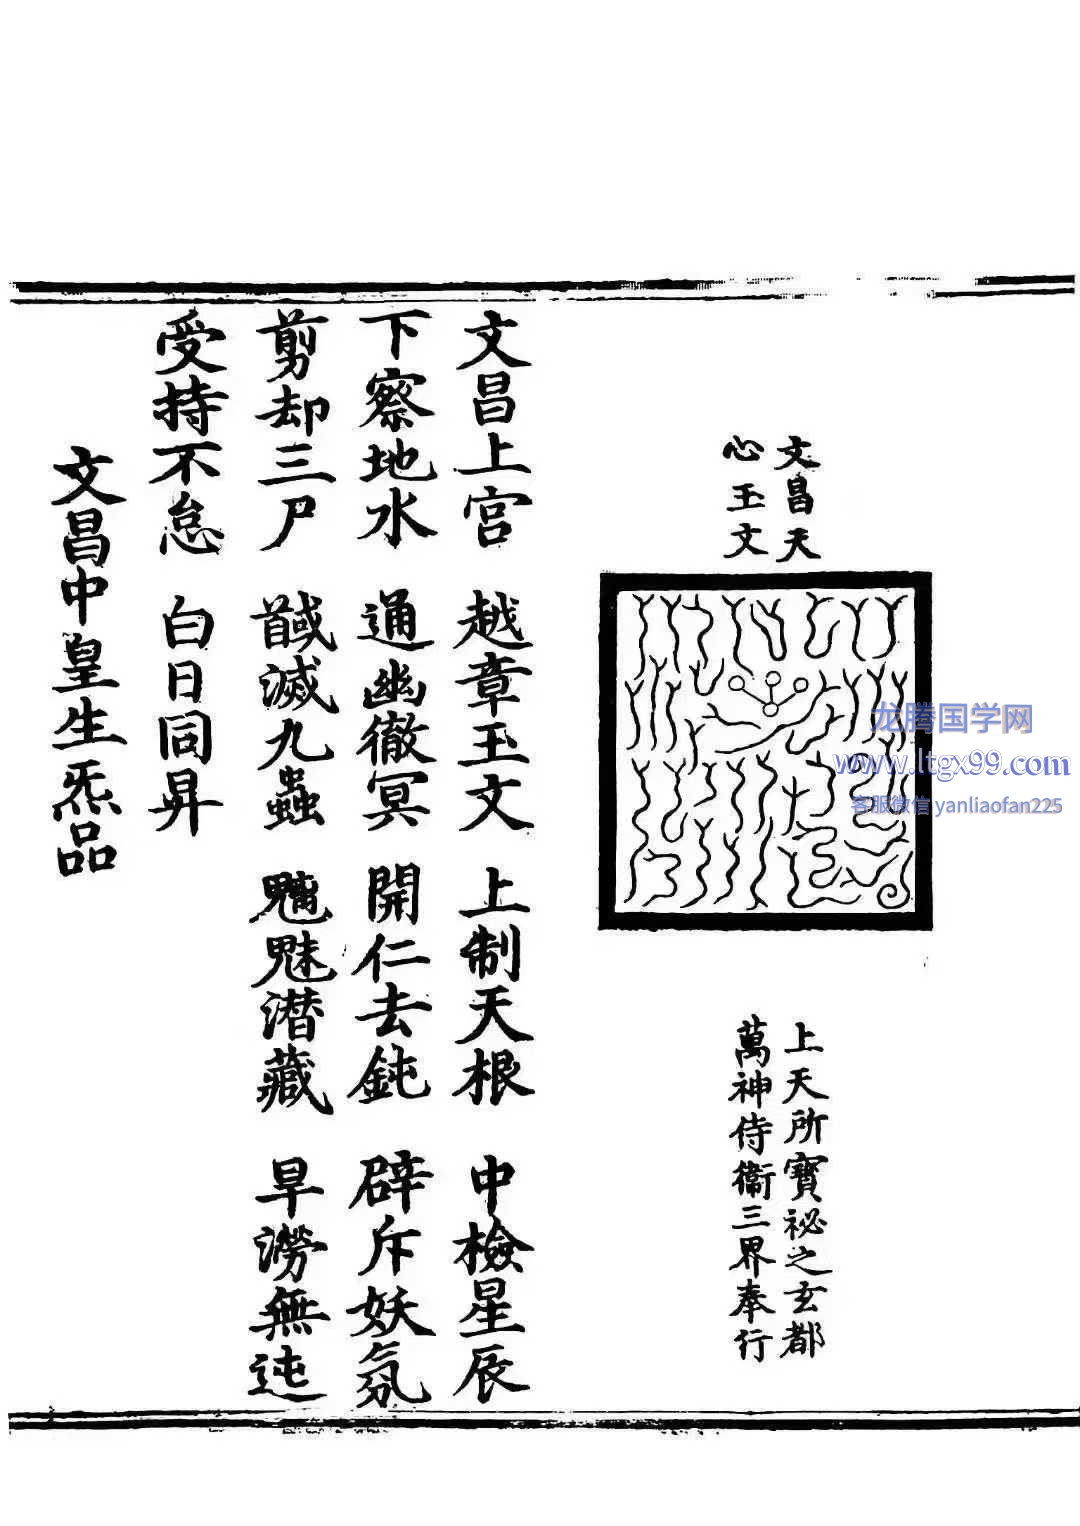 文昌天
心玉文
上天所寶祕之玄都
萬神侍衛三界奉行
文昌上宮 越章玉文 上制天根 中檢星辰
下察地水 通幽徹冥 開仁去鈍 辟斥妖氛
剪却三尸 馘滅九蟲 魑魅潛藏 旱澇無迍
受持不怠 白日同昇
文昌中皇生炁品
龙腾国学网
www.ltgx99.com
客服微信 yanliaofan225